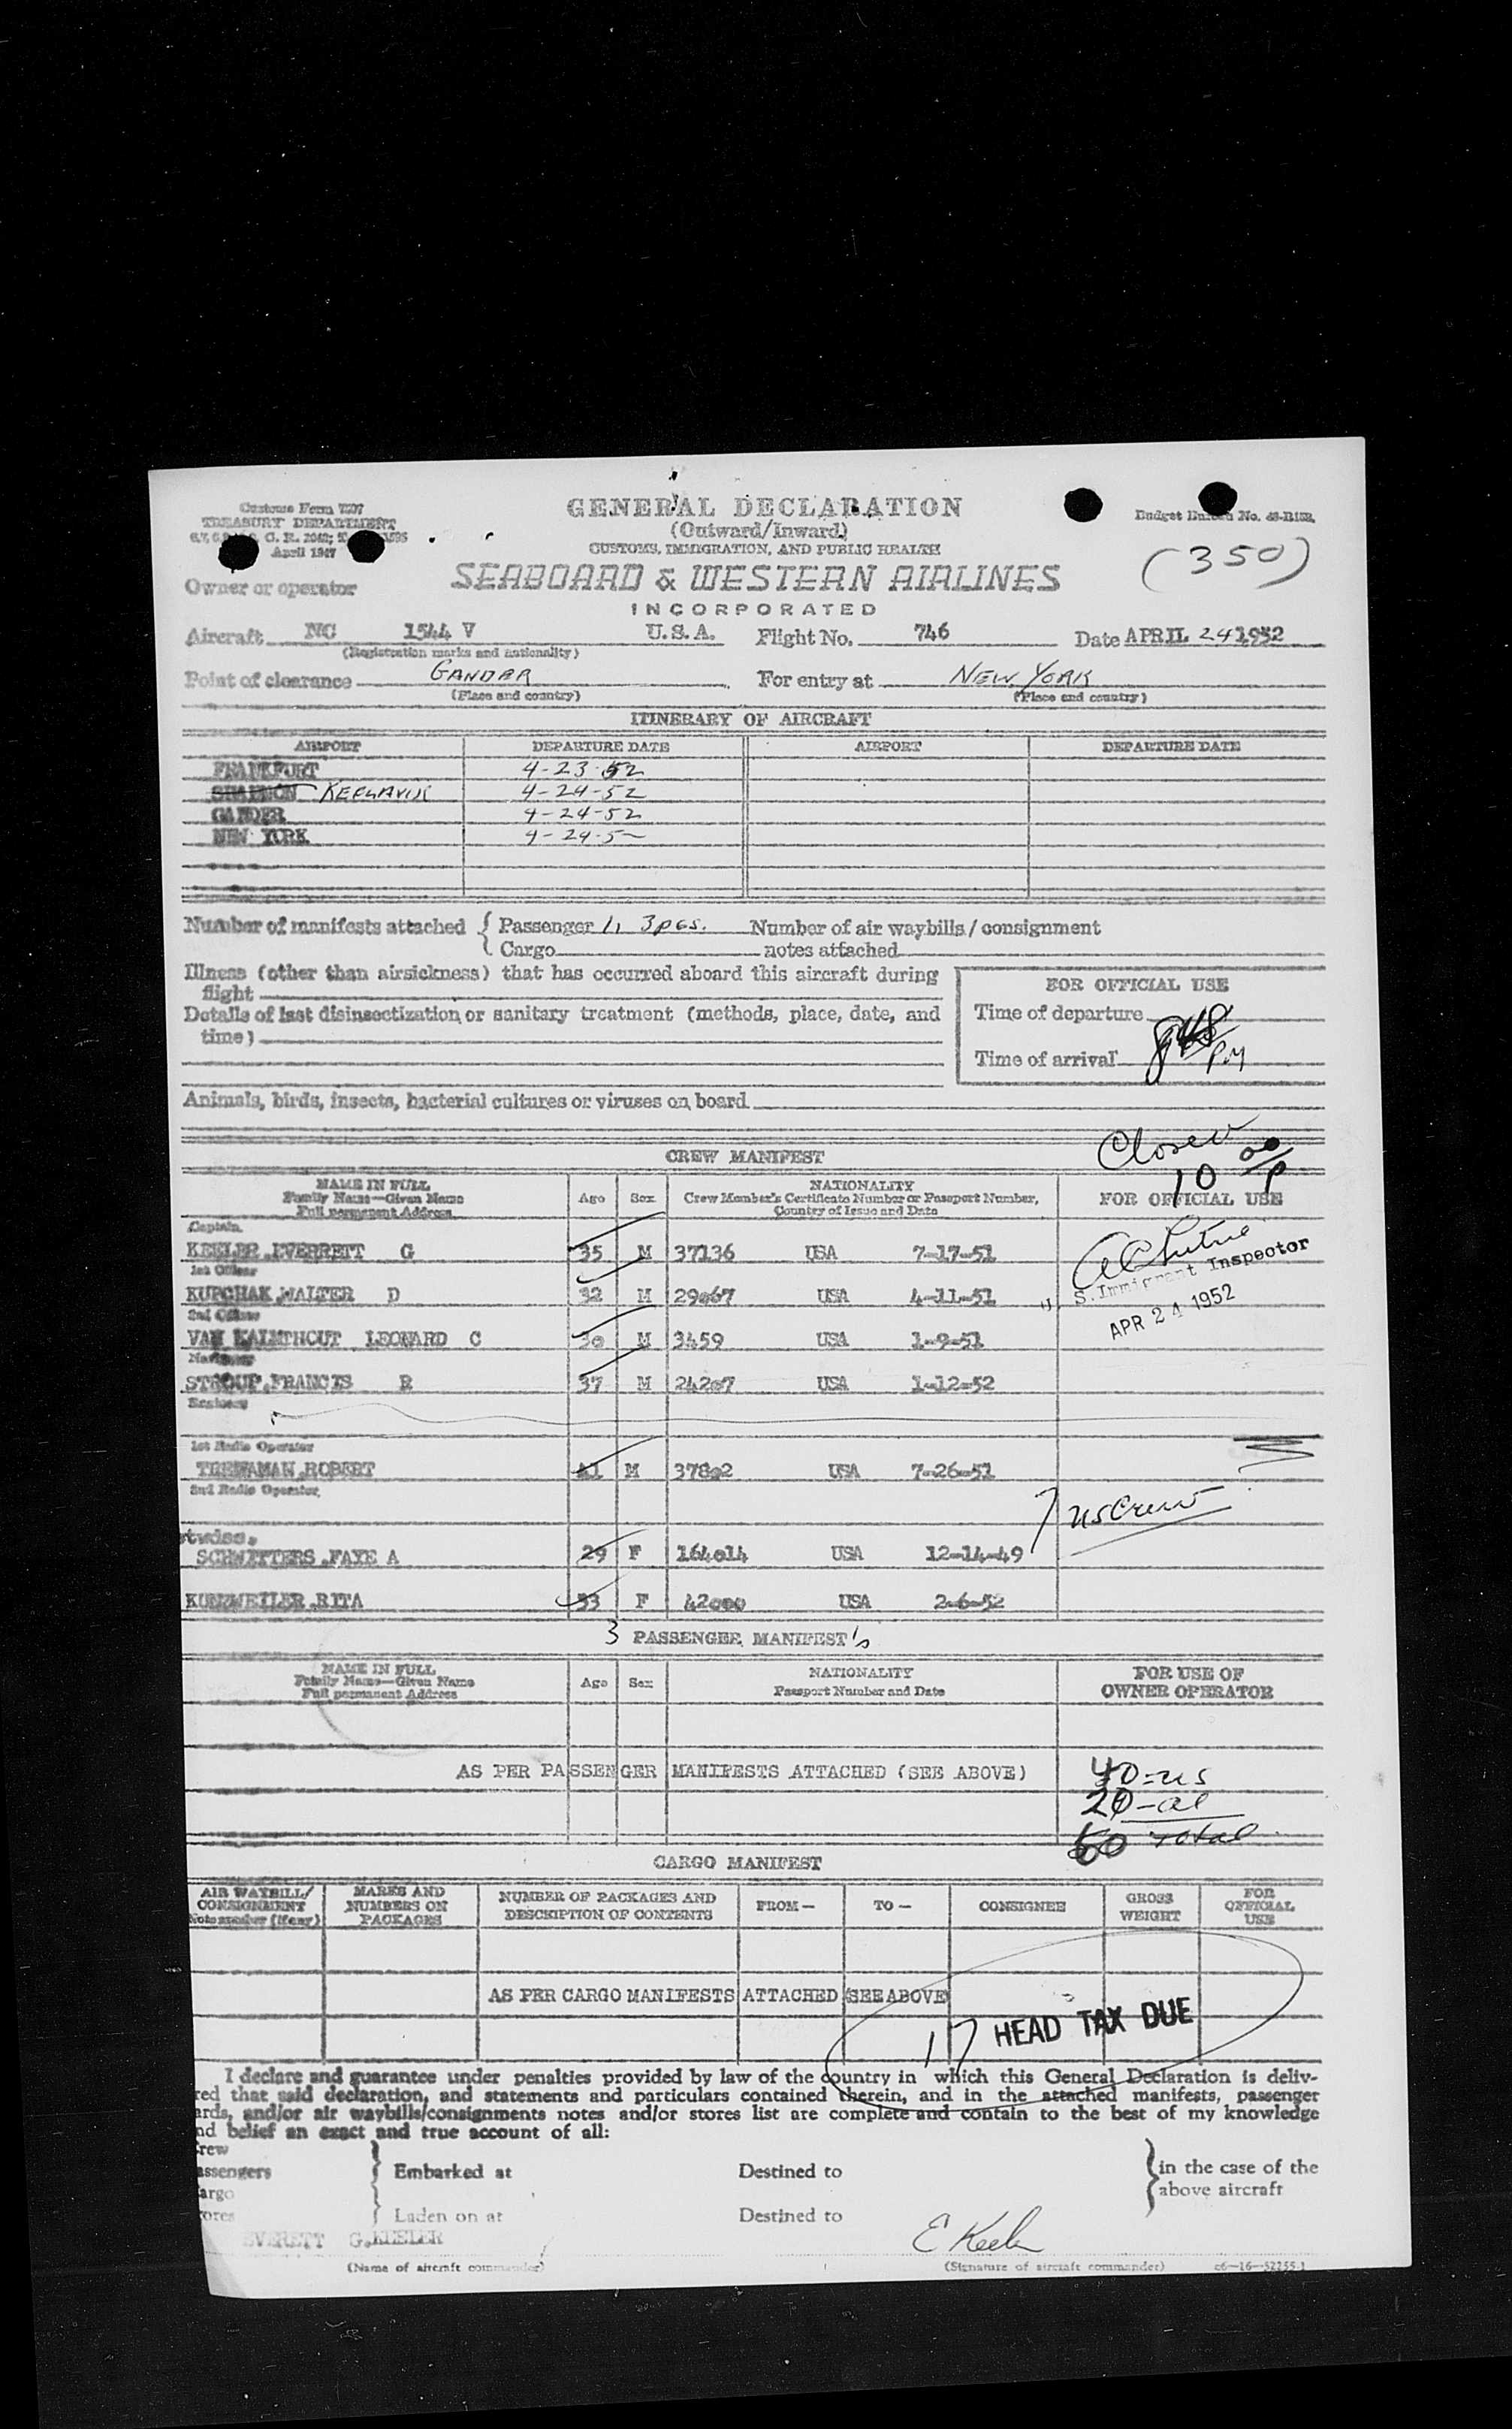 Customs Form 7507
TREASURY DEPARTMENT
April 1947
GENERAL DECLARATION
(Outward/Inward)
CUSTOMS, IMMIGRATION, AND PUBLIC HEALTH
Budget Bureau No. 48-R152.
(350)
Owner or operator
SEABOARD & WESTERN AIRLINES
INCORPORATED
Aircraft NC 1544 V U.S.A. Flight No. 746 Date APRIL 24 1952
(Registration marks and nationality)
Point of clearance GANDER For entry at NEW YORK
(Place and country) (Place and country)
ITINERARY OF AIRCRAFT
AIRPORT DEPARTURE DATE AIRPORT DEPARTURE DATE
FRANKFURT 4-23-52
SHANNON KEFLAVIK 4-24-52
GANDER 4-24-52
NEW YORK 4-24-5
Number of manifests attached { Passenger 1, 3 pgs. Number of air waybills/consignment
Cargo notes attached
Illness (other than airsickness) that has occurred aboard this aircraft during
flight
Details of last disinsectization or sanitary treatment (methods, place, date, and
time)
FOR OFFICIAL USE
Time of departure
Time of arrival PM
Animals, birds, insects, bacterial cultures or viruses on board
Closed
10 00 P
CREW MANIFEST
NAME IN FULL
Family Name—Given Name
Full permanent Address
Age Sex
NATIONALITY
Crew Member's Certificate Number or Passport Number,
Country of Issue and Date
FOR OFFICIAL USE
Captain
KEELER, EVERRETT G 35 M 37136 USA 7-17-51
1st Officer
KUPCHAK, WALTER D 32 M 29067 USA 4-11-51
2nd Officer
VAN KALMTHOUT LEONARD C 30 M 3459 USA 1-9-51
Navigator
STROUP, FRANCIS R 37 M 24207 USA 1-12-52
U.S. Immigrant Inspector
APR 24 1952
1st Radio Operator
TREWAMAN, ROBERT 41 M 37802 USA 7-26-51
2nd Radio Operator
7 US Crew
stwdss.
SCHWITTERS, FAYE A 29 F 164014 USA 12-14-49
KURZWEILER, RITA 33 F 42000 USA 2-6-52
3 PASSENGER MANIFEST's
NAME IN FULL
Family Name—Given Name
Full permanent Address
Age Sex
NATIONALITY
Passport Number and Date
FOR USE OF
OWNER OPERATOR
AS PER PASSENGER MANIFESTS ATTACHED (SEE ABOVE)
40 = US
20 - al
60 Total
CARGO MANIFEST
AIR WAYBILL/
CONSIGNMENT
Note number (if any)
MARKS AND
NUMBERS ON
PACKAGES
NUMBER OF PACKAGES AND
DESCRIPTION OF CONTENTS
FROM— TO— CONSIGNEE
GROSS
WEIGHT
FOR
OFFICIAL
USE
AS PER CARGO MANIFESTS ATTACHED (SEE ABOVE)
17 HEAD TAX DUE
I declare and guarantee under penalties provided by law of the country in which this General Declaration is deliv-
red that said declaration, and statements and particulars contained therein, and in the attached manifests, passenger
ards, and/or air waybills/consignments notes and/or stores list are complete and contain to the best of my knowledge
nd belief an exact and true account of all:
rew
assengers } Embarked at Destined to } in the case of the
above aircraft
argo
ores } Laden on at Destined to
EVERETT G. KEELER E Keeler
(Name of aircraft commander) (Signature of aircraft commander) c6-16-52255-1